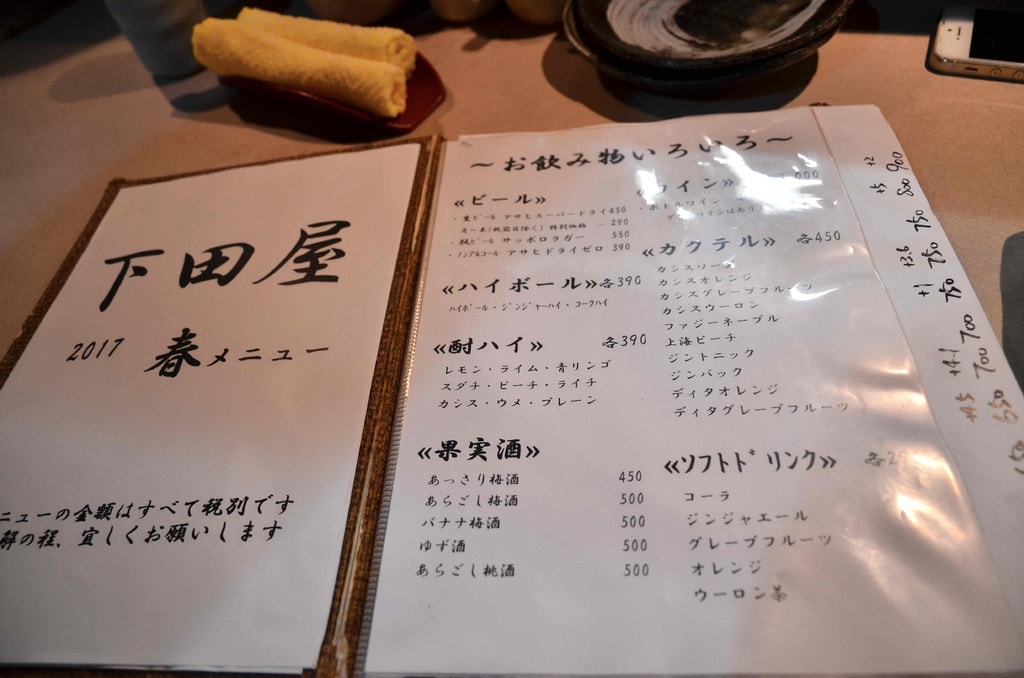 下田屋
2017 春メニュー
ニューの金額はすべて税別です
解の程、宜しくお願いします
～お飲み物いろいろ～
≪ビール≫
・生ビール アサヒスーパードライ 450
月～木(祝前日除く) 特別価格 … 290
・瓶ビール サッポロラガー 550
・ノンアルコール アサヒドライゼロ 390
≪ハイボール≫各390
ハイボール・ジンジャーハイ・コークハイ
≪酎ハイ≫ 各390
レモン・ライム・青リンゴ
スダチ・ピーチ・ライチ
カシス・ウメ・プレーン
≪果実酒≫
あっさり梅酒 450
あらごし梅酒 500
バナナ梅酒 500
ゆず酒 500
あらごし桃酒 500
≪ワイン≫
・ボトルワイン
≪カクテル≫ 各450
カシスソーダ
カシスオレンジ
カシスグレープフルーツ
カシスウーロン
ファジーネーブル
上海ピーチ
ジントニック
ジンバック
ディタオレンジ
ディタグレープフルーツ
≪ソフトドリンク≫ 各
コーラ
ジンジャエール
グレープフルーツ
オレンジ
ウーロン茶
+2 900
+5 800
750
+3.6 750
+1 750
700
+4.1 700
+4.5 650